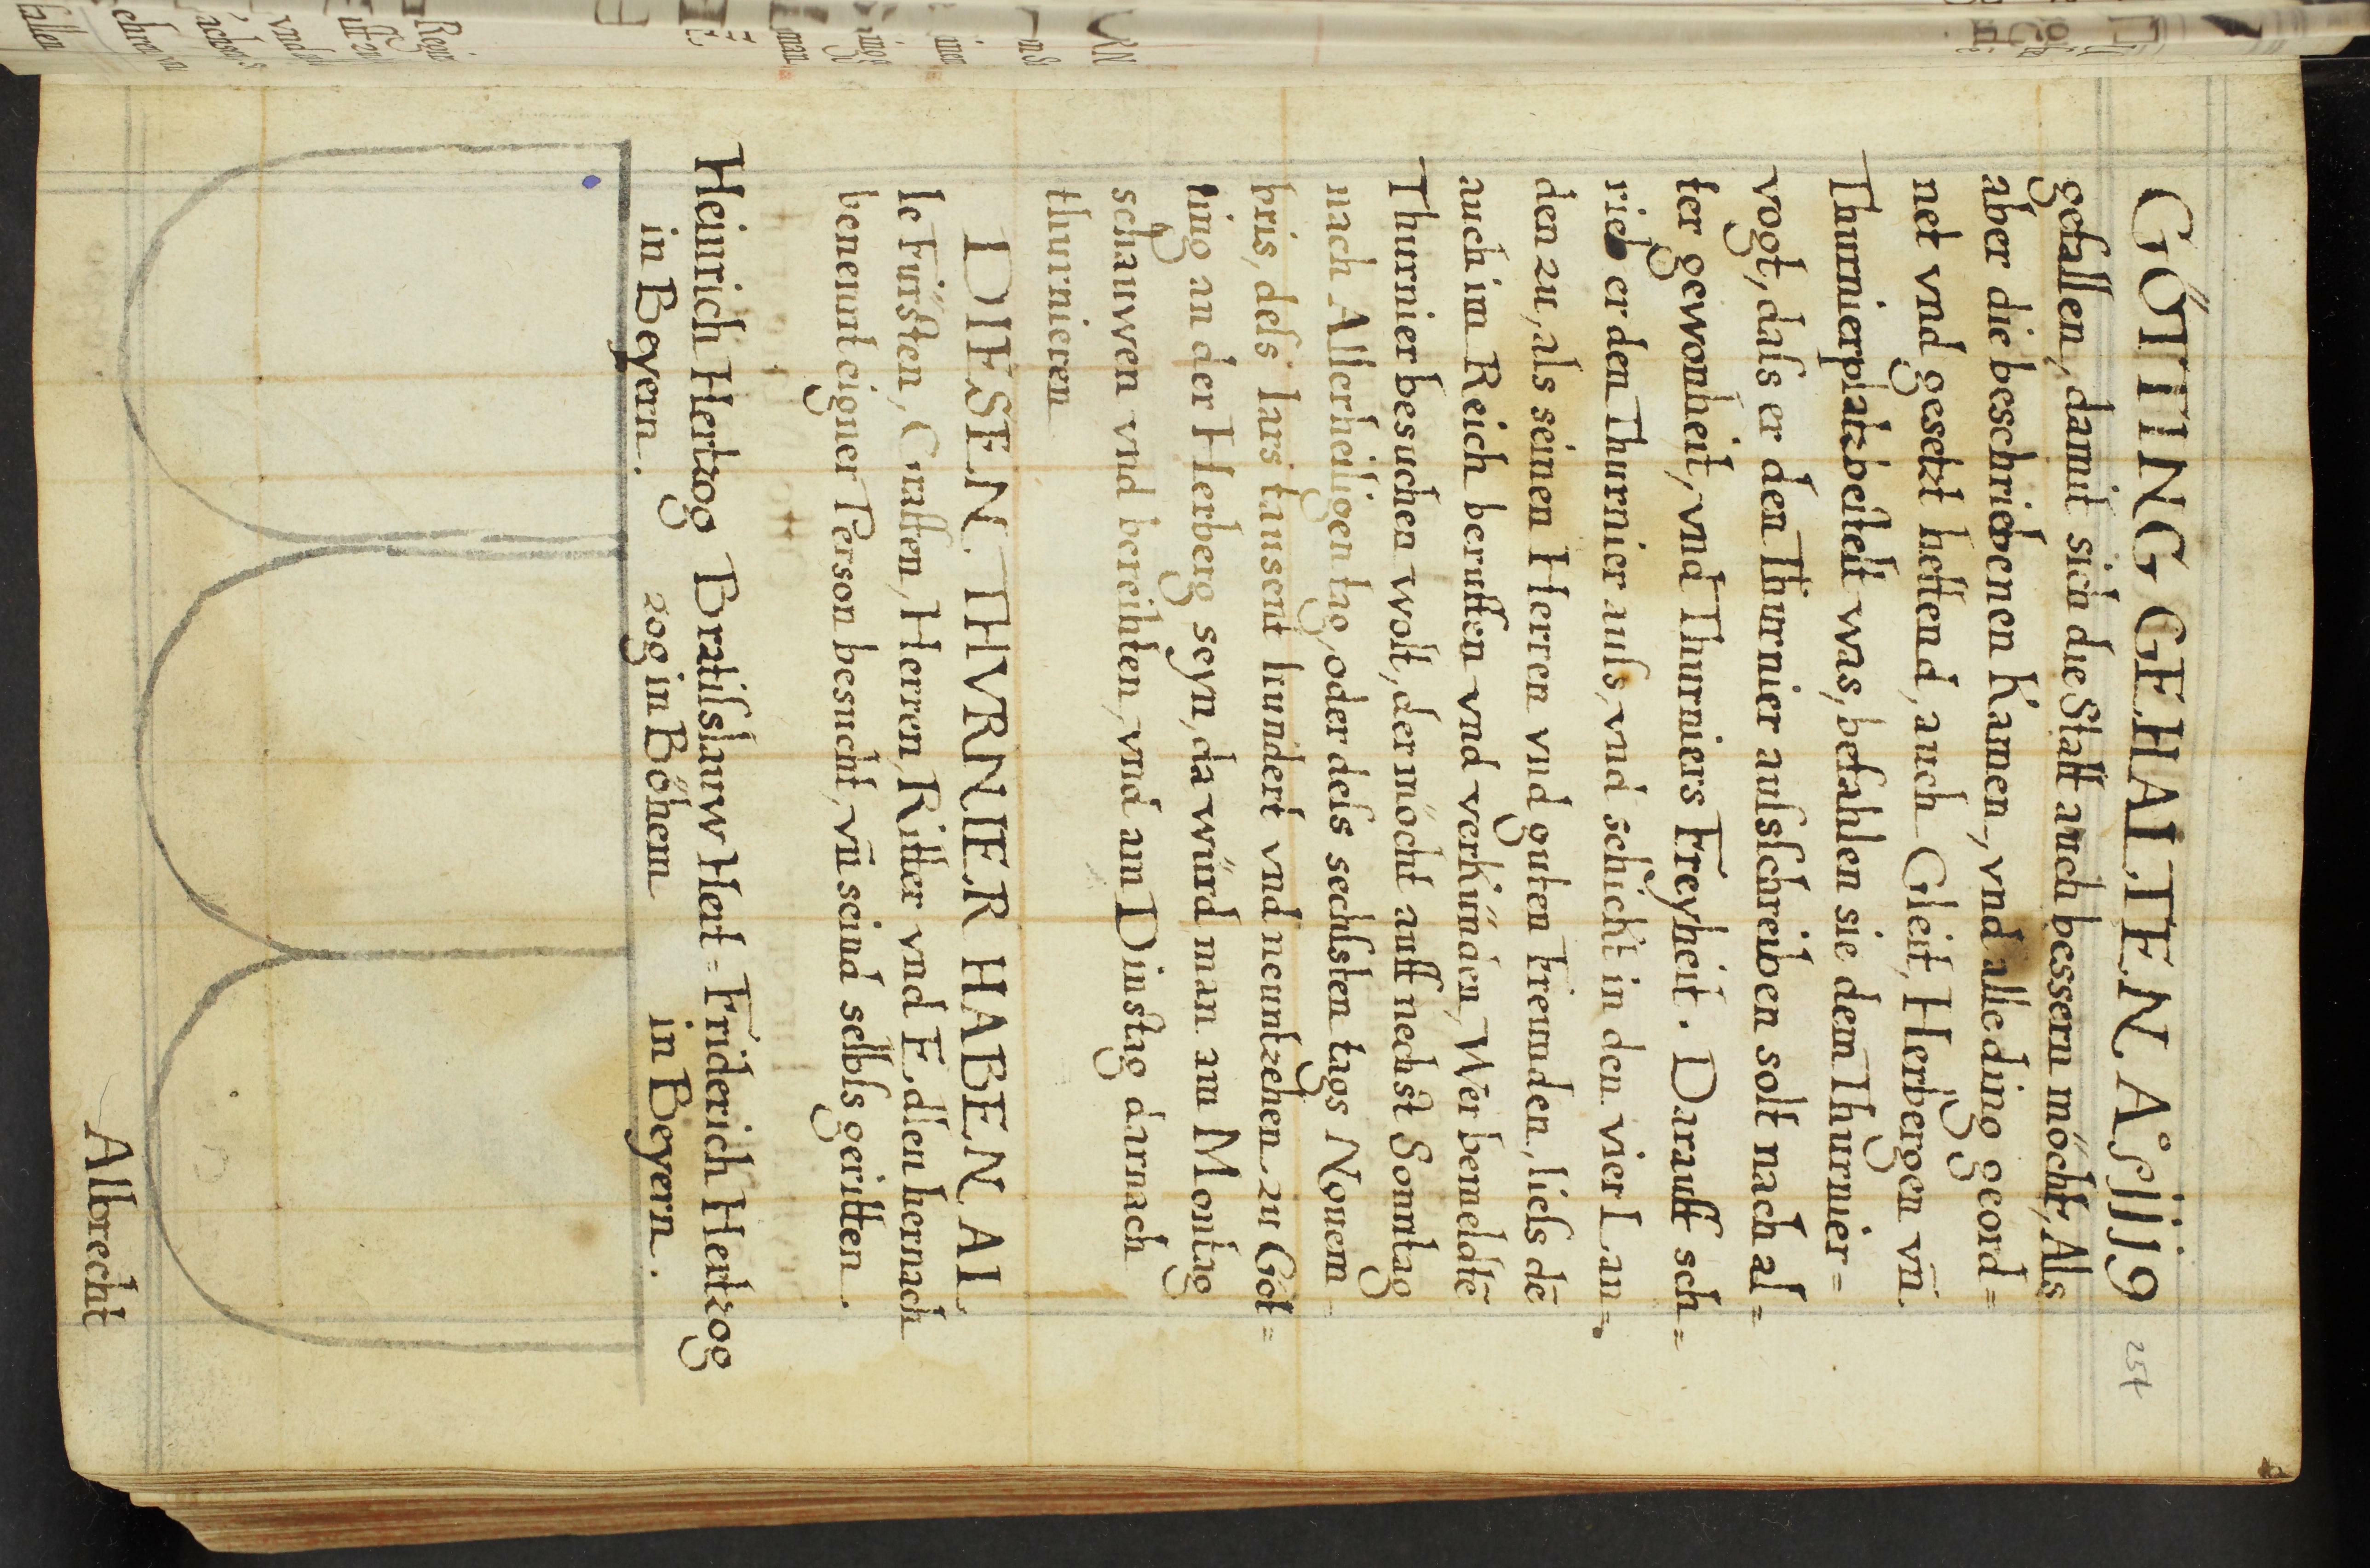 GÖTTING GEHALTEN Aº 1119
254
gefallen, damit sich die Statt auch bessern möcht, Als
aber die beschribenen Kamen, vnd alle ding geord=
net vnd gesetzt hetten d, auch Gleit, Herbergen vn̄
Thurnierplatz bestelt was, befahlen sie dem Thurnier=
vogt, dass er den Thurnier ausschreiben solt nach al=
ter gewonheit, vnd Thurniers Freyheit. Darauff sch=
rieb er den Thurnier auss, vnd schickt in den vier Lan=
den zu, als seinen Herren vnd guten Freunden, liess dē
auch im Reich beruffen vnd verkünden, Wer bemeldtē
Thurnier besuchen wolt, der möcht auff nechst Sonntag
nach Allerheiligen tag, oder dess sechsten tags Nouem
bris, dess Iars tausent hundert vnd neuntzehen zu Göt=
ting an der Herberg seyn, da würd man am Montag
schauwen vnd bereihten, vnd am Dinstag darnach
thurnieren
DIESEN THVRNIER HABEN AL
le Fürsten, Graffen, Herren, Ritter vnd Edlen hernach
benennt eigner Person besucht, vn̄ seind selbs geritten.
Heinrich Hertzog Bratisslauw Hert= Friderich Hertzog
in Beyern. zog in Böhem in Beyern.
Albrecht